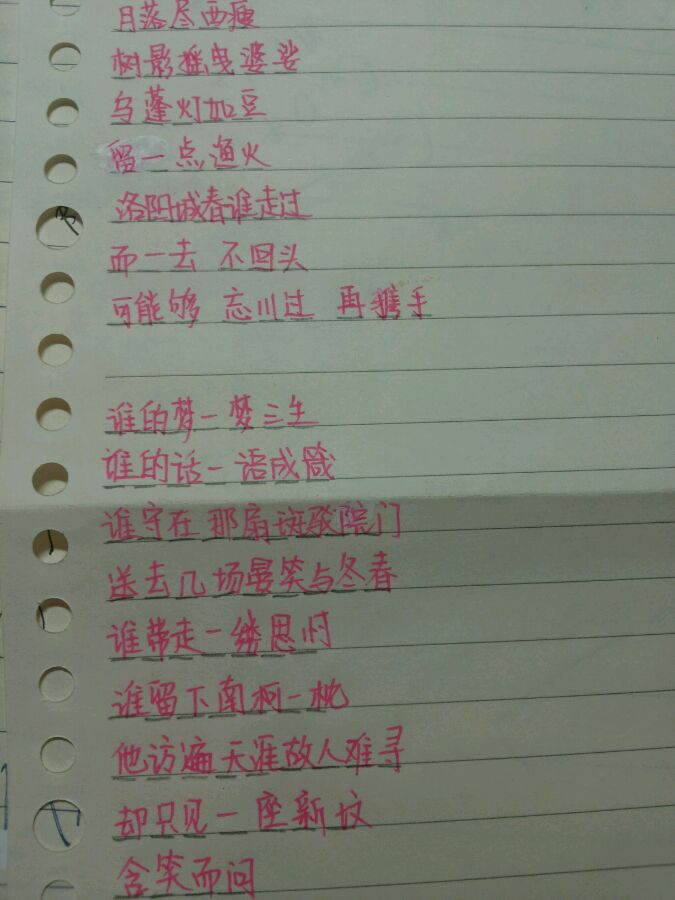 月落尽西瘦
树影摇曳婆娑
乌蓬灯如豆
留一点渔火
洛阳城春谁走过
而一去 不回头
可能够 忘川过 再携手
谁的梦一梦三生
谁的话一语成箴
谁守在那扇斑驳院门
送去几场晏笑与冬春
谁带走一缕思忖
谁留下南柯一枕
他访遍天涯故人难寻
却只见一座新坟
含笑而问